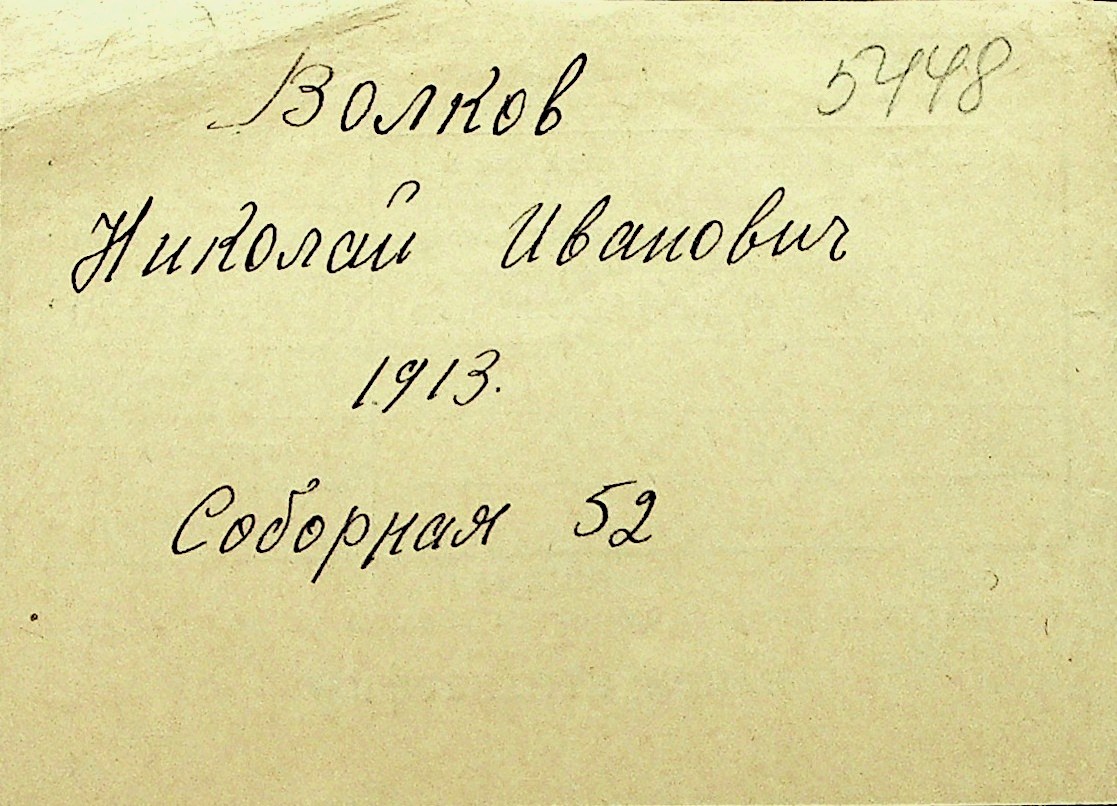 Волков 5448
Николай Иванович
1913.
Соборная 52